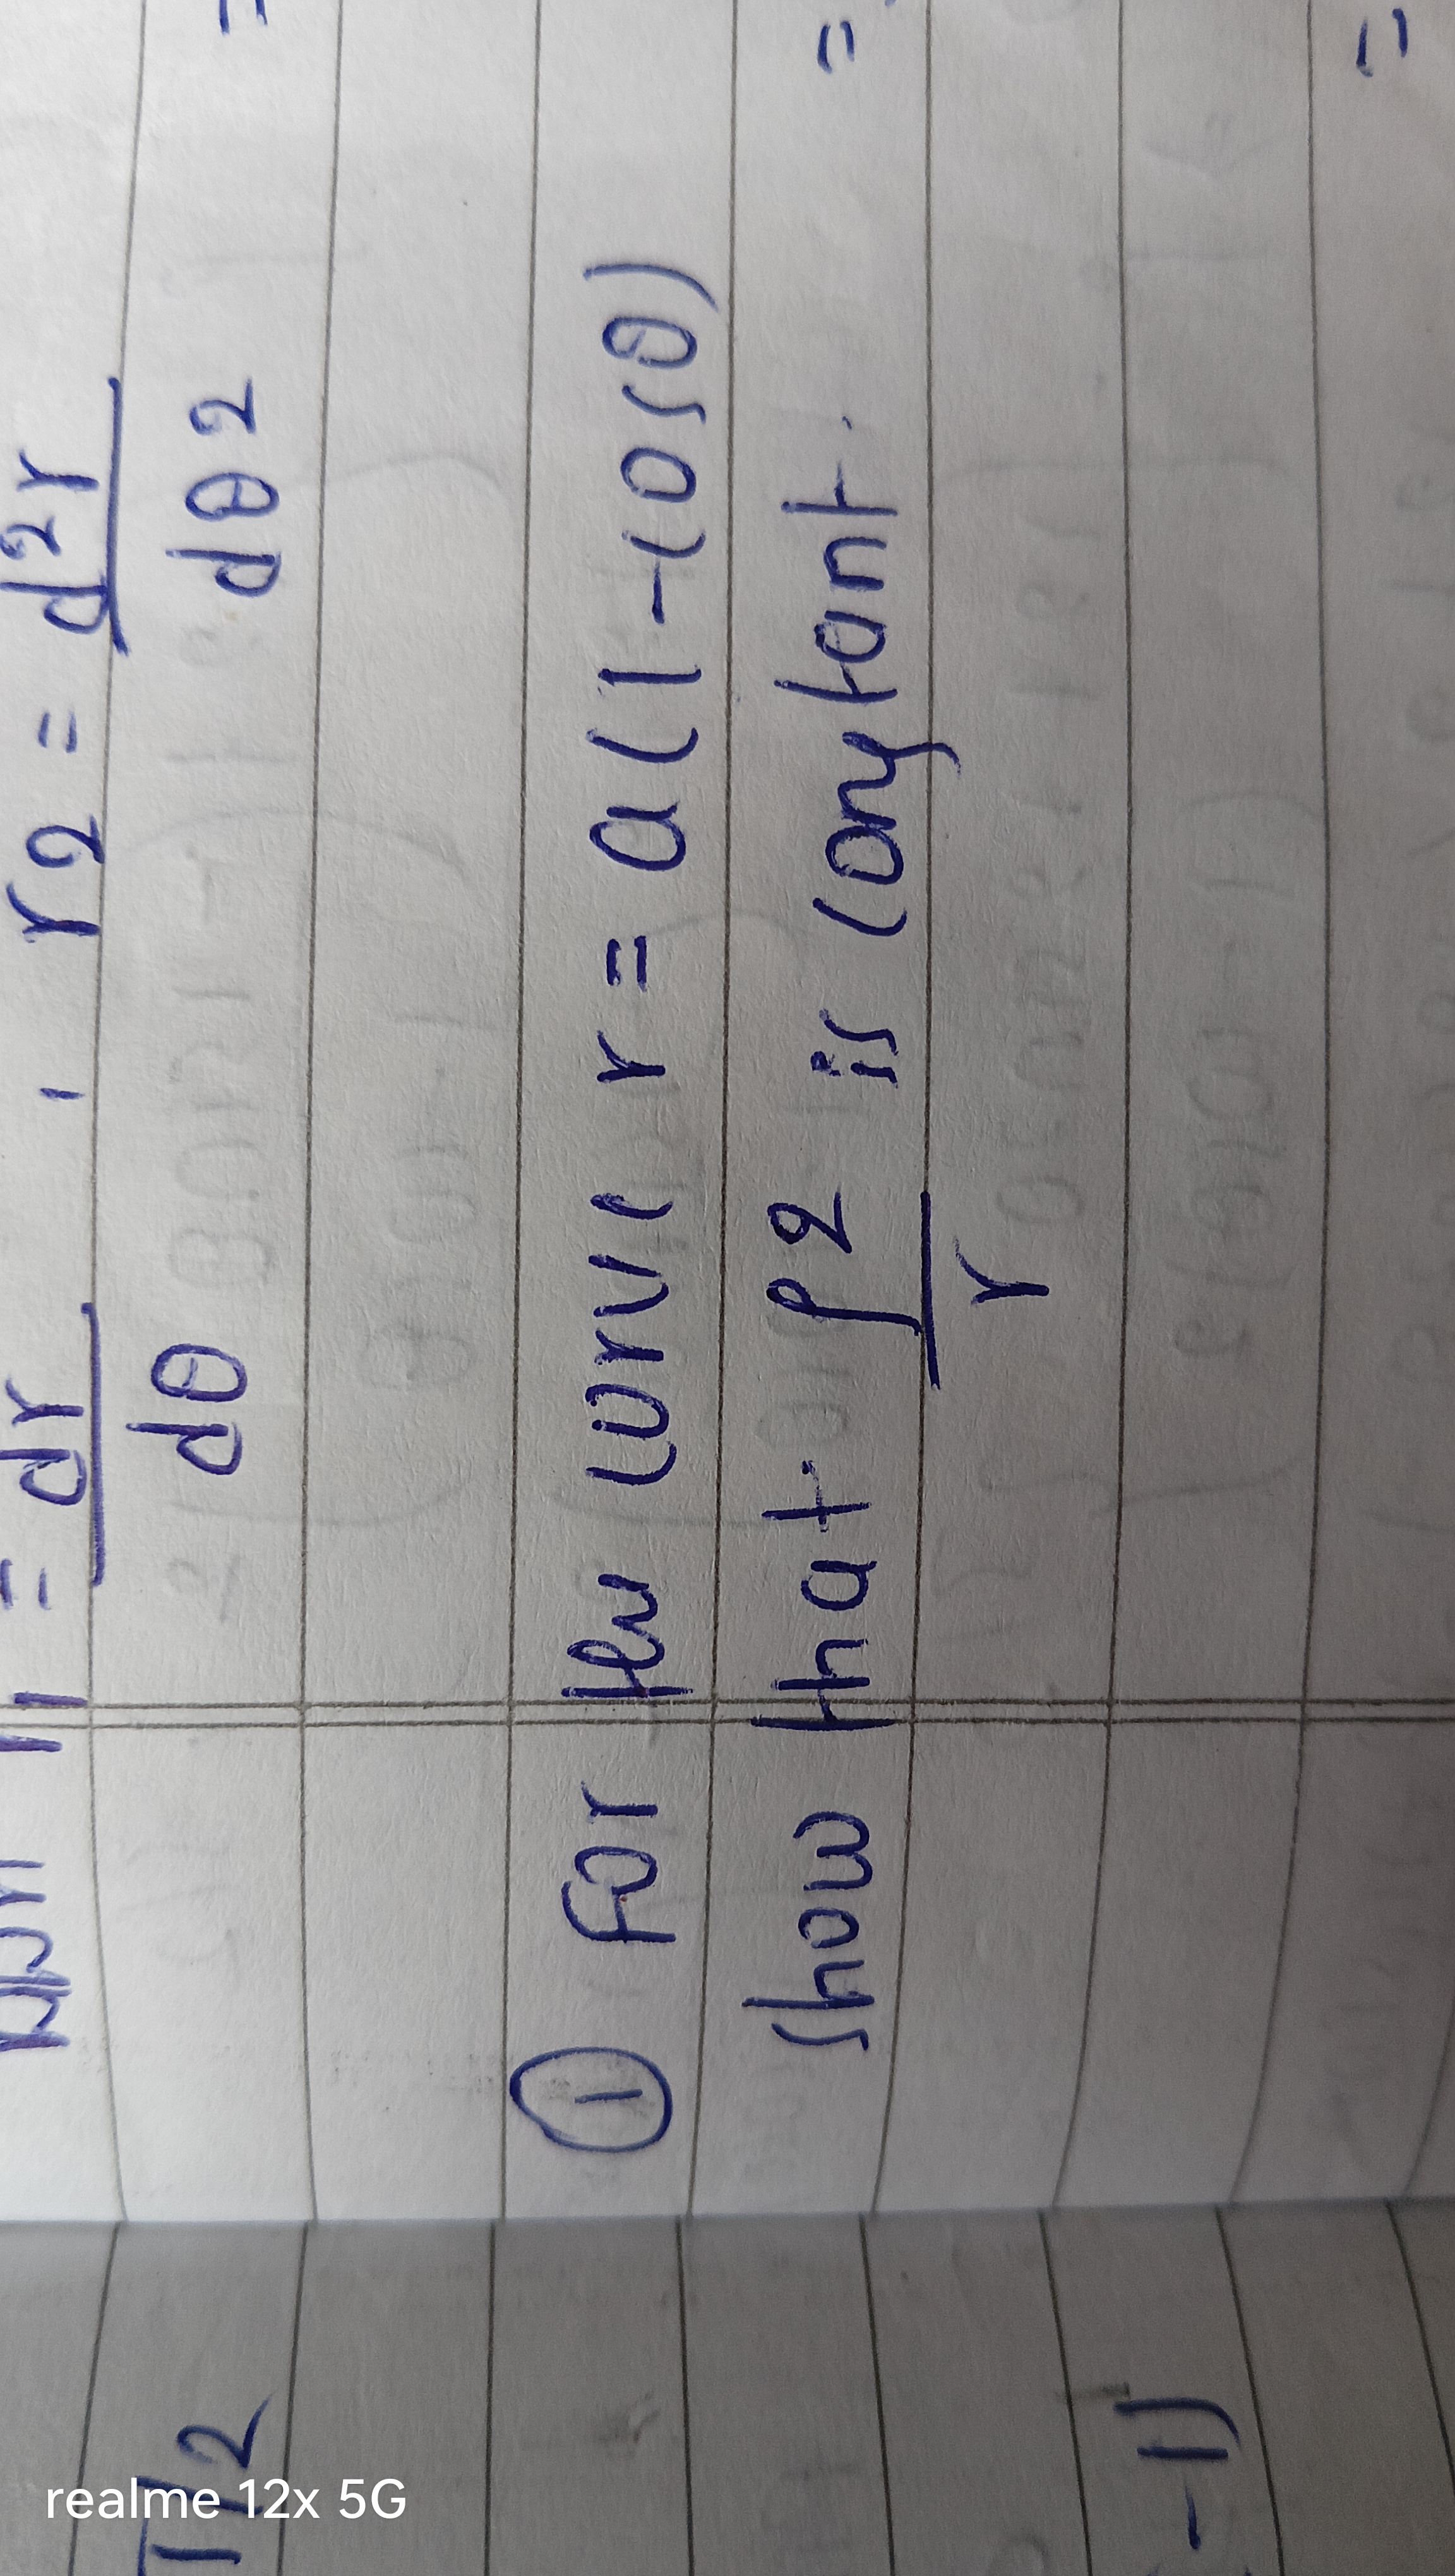 = dr/dθ , r2 = d²r/dθ²
① For the curve r = a(1-cosθ)
show that ρ²/r is constant.
=
=
π/2
-1)
realme 12x 5G